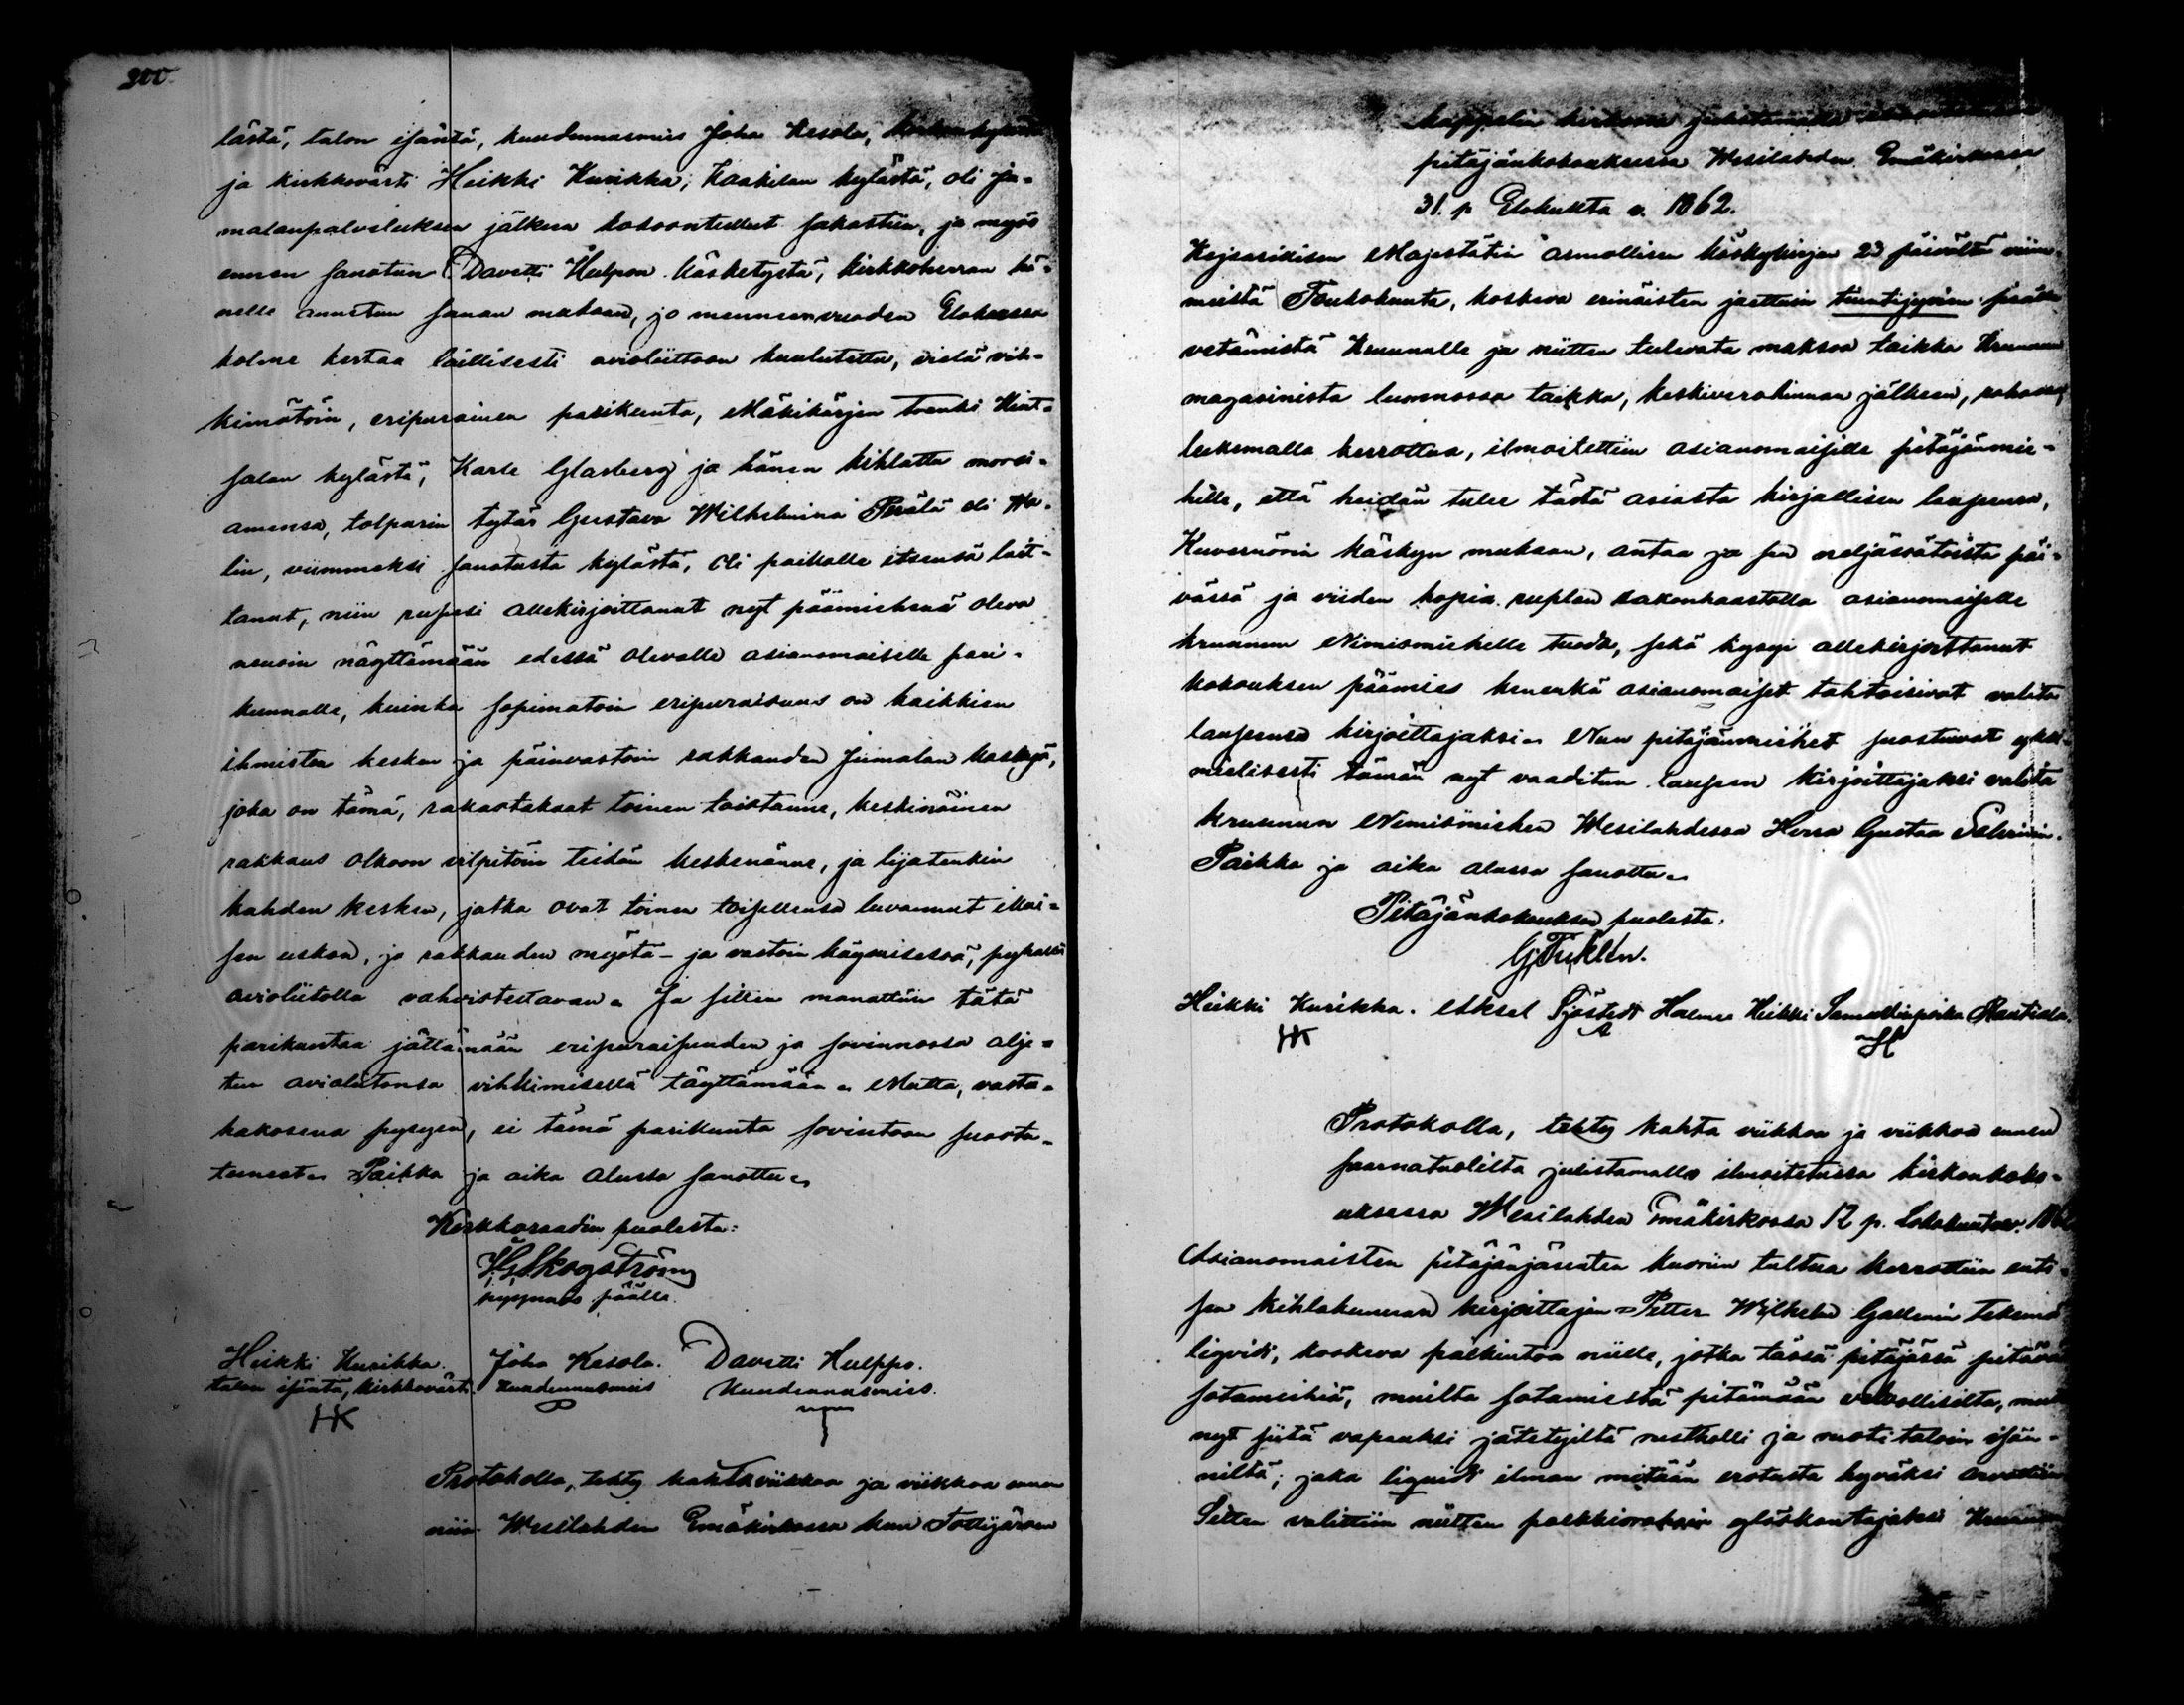 200.
lästä, talon isäntä, kuudennusmies Joha Kesola,
ja kirkkovärti Heikki Kurikka, Kaakilan kylästä, oli ju-
malanpalveluksen jälkeen kokoontullut sakastiin, ja myös
ennen sanotun Davetti Hulpon käsketystä, kirkkoherran hä-
nelle annetun sanan mukaan, jo mennen vuoden Elokuussa
kolme kertaa laillisesti avioliittoon kuulutettu, vielä vih-
kimätöin, eripurainen parikunta, Mäkikärjen trenki
salan kylästä, Karle Glasberg ja hänen kihlattu morsi-
amensa, tolparin tytär Gustava Wilhelmina Perälä eli Wa-
lin, viimmeksi sanotusta kylästä, oli paikalle itsensä lait-
tanut, niin rupesi allekirjoittanut nyt päämiehenä oleva
neuvoin näyttämään edessä olevalle asianomaiselle pari-
kunnalle, kuinka sopimatoin eripuraisuus on kaikkien
ihmisten kesken ja päinvastoin rakkauden Jumalan käskyä,
joka on tämä, rakastakaat toinen toistanne, keskinäinen
rakkaus olkoon vilpitöin teidän keskenänne, ja lijatenkin
kahden kesken, jotka ovat toinen toisellensa luvannut
sen uskon, ja rakkauden myötä- ja vastoin käymisessä, pyhällä
avioliitolla vahvistettavan. Ja sitten manattiin tätä
parikuntaa jättämään eripuraisuuden ja sovinnossa alje-
tun avioliitonsa vihkimisellä täyttämään. Mutta, vasta-
hakosena pysyen, ei tämä parikunta sovintoon suostu-
tunut. Paikka ja aika alussa sanottu.
Kirkkoraadin puolesta:
H. G. Skogström
pyynnös päälle.
Heikki Kurikka. Joha Kesola. Davetti Hulppo.
talon isäntä, kirkkovärti. kuudennusmies Kuudennusmies.
HK
Protokolla, tehty kahta viikkoa ja viikkoa ennen
niin Wesilahden Emäkirkossa kuin Tottijärven
kappelin kirkossa julistamalla
pitäjänkokouksessa Wesilahden Emäkirkossa
31. p Elokukta v. 1862.
Kejsarillisen Majestätin armollisen käskykirjan 23 päivältä viim-
meistä Toukokuuta, koskeva erinäisten jaettuin tiuntijyväin päälle
vetämistä Kruunulle ja niitten tulevata maksoa taikka Kruunun
magasinista luonnossa taikka, keskiverohinnan jälkeen, rahassa,
lukemalla kerrottua, ilmoitettiin asianomaisille pitäjänmie-
hille, että heidän tulee tästä asiasta kirjallisen laususensa,
Kuvernörin käskyn mukaan, antaa ja se neljässätoista päi-
vässä ja viiden hopia ruplan sakonhaastolla asianomaiselle
kruunun Nimismiehelle tuoda, sekä kysyi allekirjoittanut
kokouksen päämies kenenkä asianomaiset tahtoisivat valita
lausunsa kirjoittajaksi. Nun pitäjänmiehet suostuivat yksi-
mielisesti tämän nyt vaaditun lausun kirjoittajaksi valita
kruunun Nimismiehen Wesilahdessa Herra Gustaa
Paikka ja aika alussa sanottu.
Pitäjänkokouksen puolesta:
Heikki Kurikka. Aksel Sjöstedt Heikki Samuelinpoika Rautiala.
HK
Protokolla, tehty kahta viikkoa ja viikkoa ennen
saarnatuolilta julistamalla ilmoitetussa kirkonkoko-
uksessa Wesilahden Emäkirkossa 12 p. Lokakuuta v.
Asianomaisten pitäjänjäsenten kuoriin tultua kerrottiin enti-
sen kihlakunnan kirjoittajan Petter Wilhelm Gallenin tekemä
ligvidi, koskeva palkintoa niille, jotka tässä pitäjässä pitävät
sotameihiä, muilta sotamiestä pitämään velvollisilta, mutta
nyt siitä vapauksi jätetyiltä rustholli ja ruotitaloin isän-
niltä; joka liqvidi ilman mitään erotusta hyväksi arvattiin
Sitten valittiin niitten palkkiorahain ylöskantajaksi Kruunun